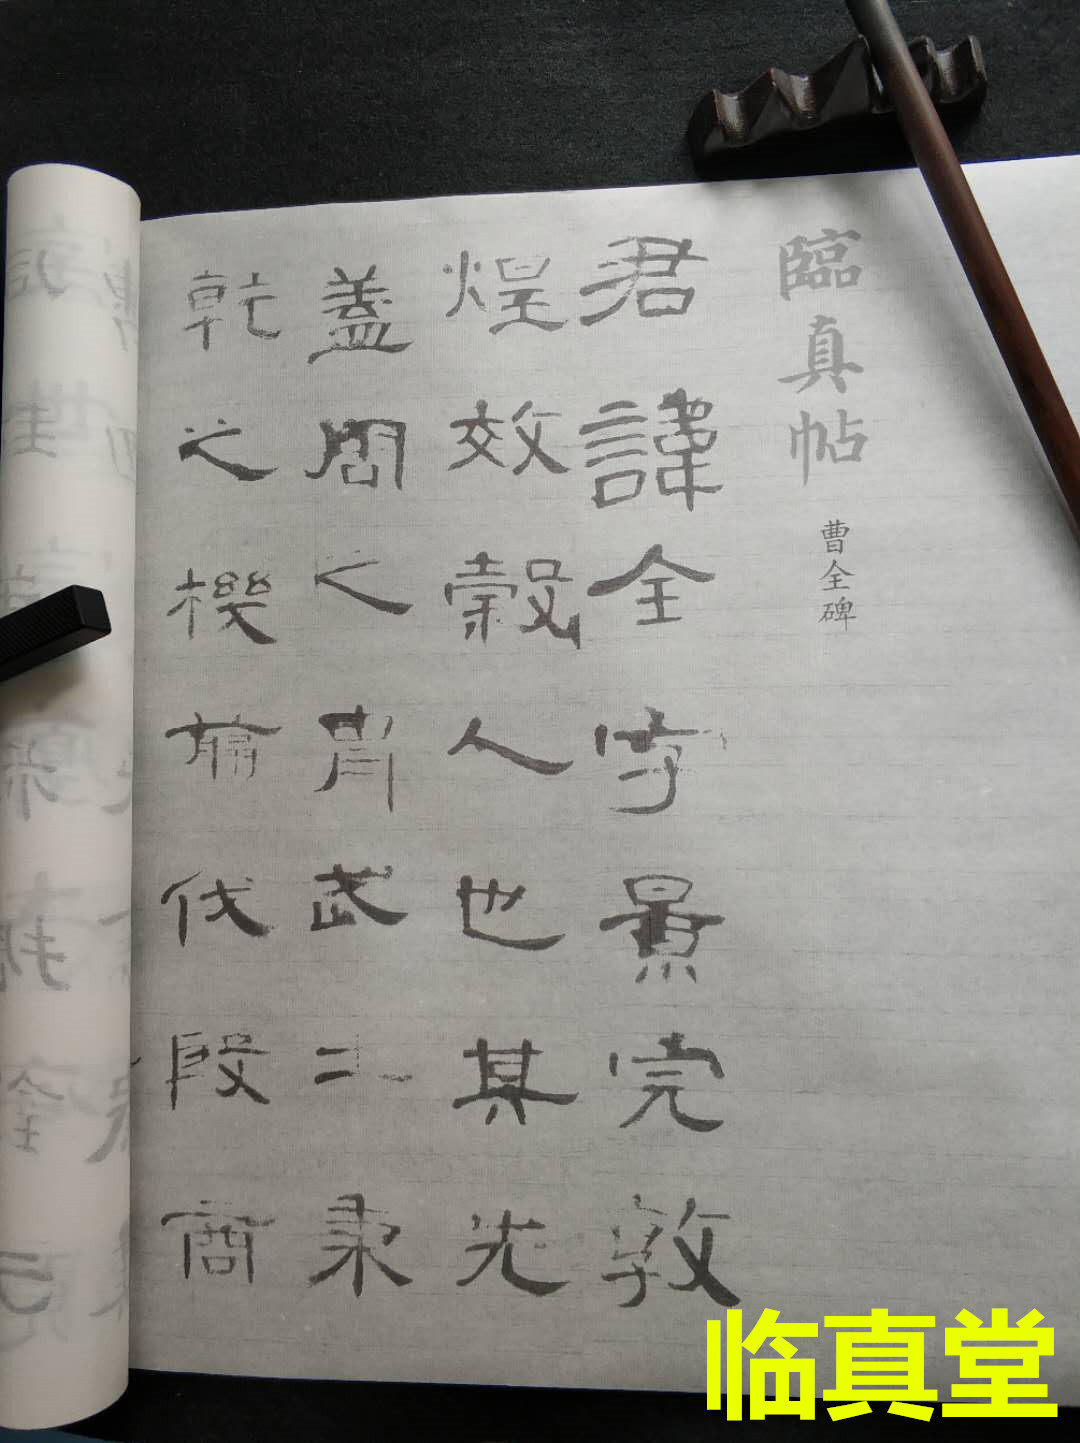 臨真帖
曹全碑
君諱全字景完敦
煌效穀人也其先
蓋周之胄武王秉
乾之機翦伐殷商
临真堂